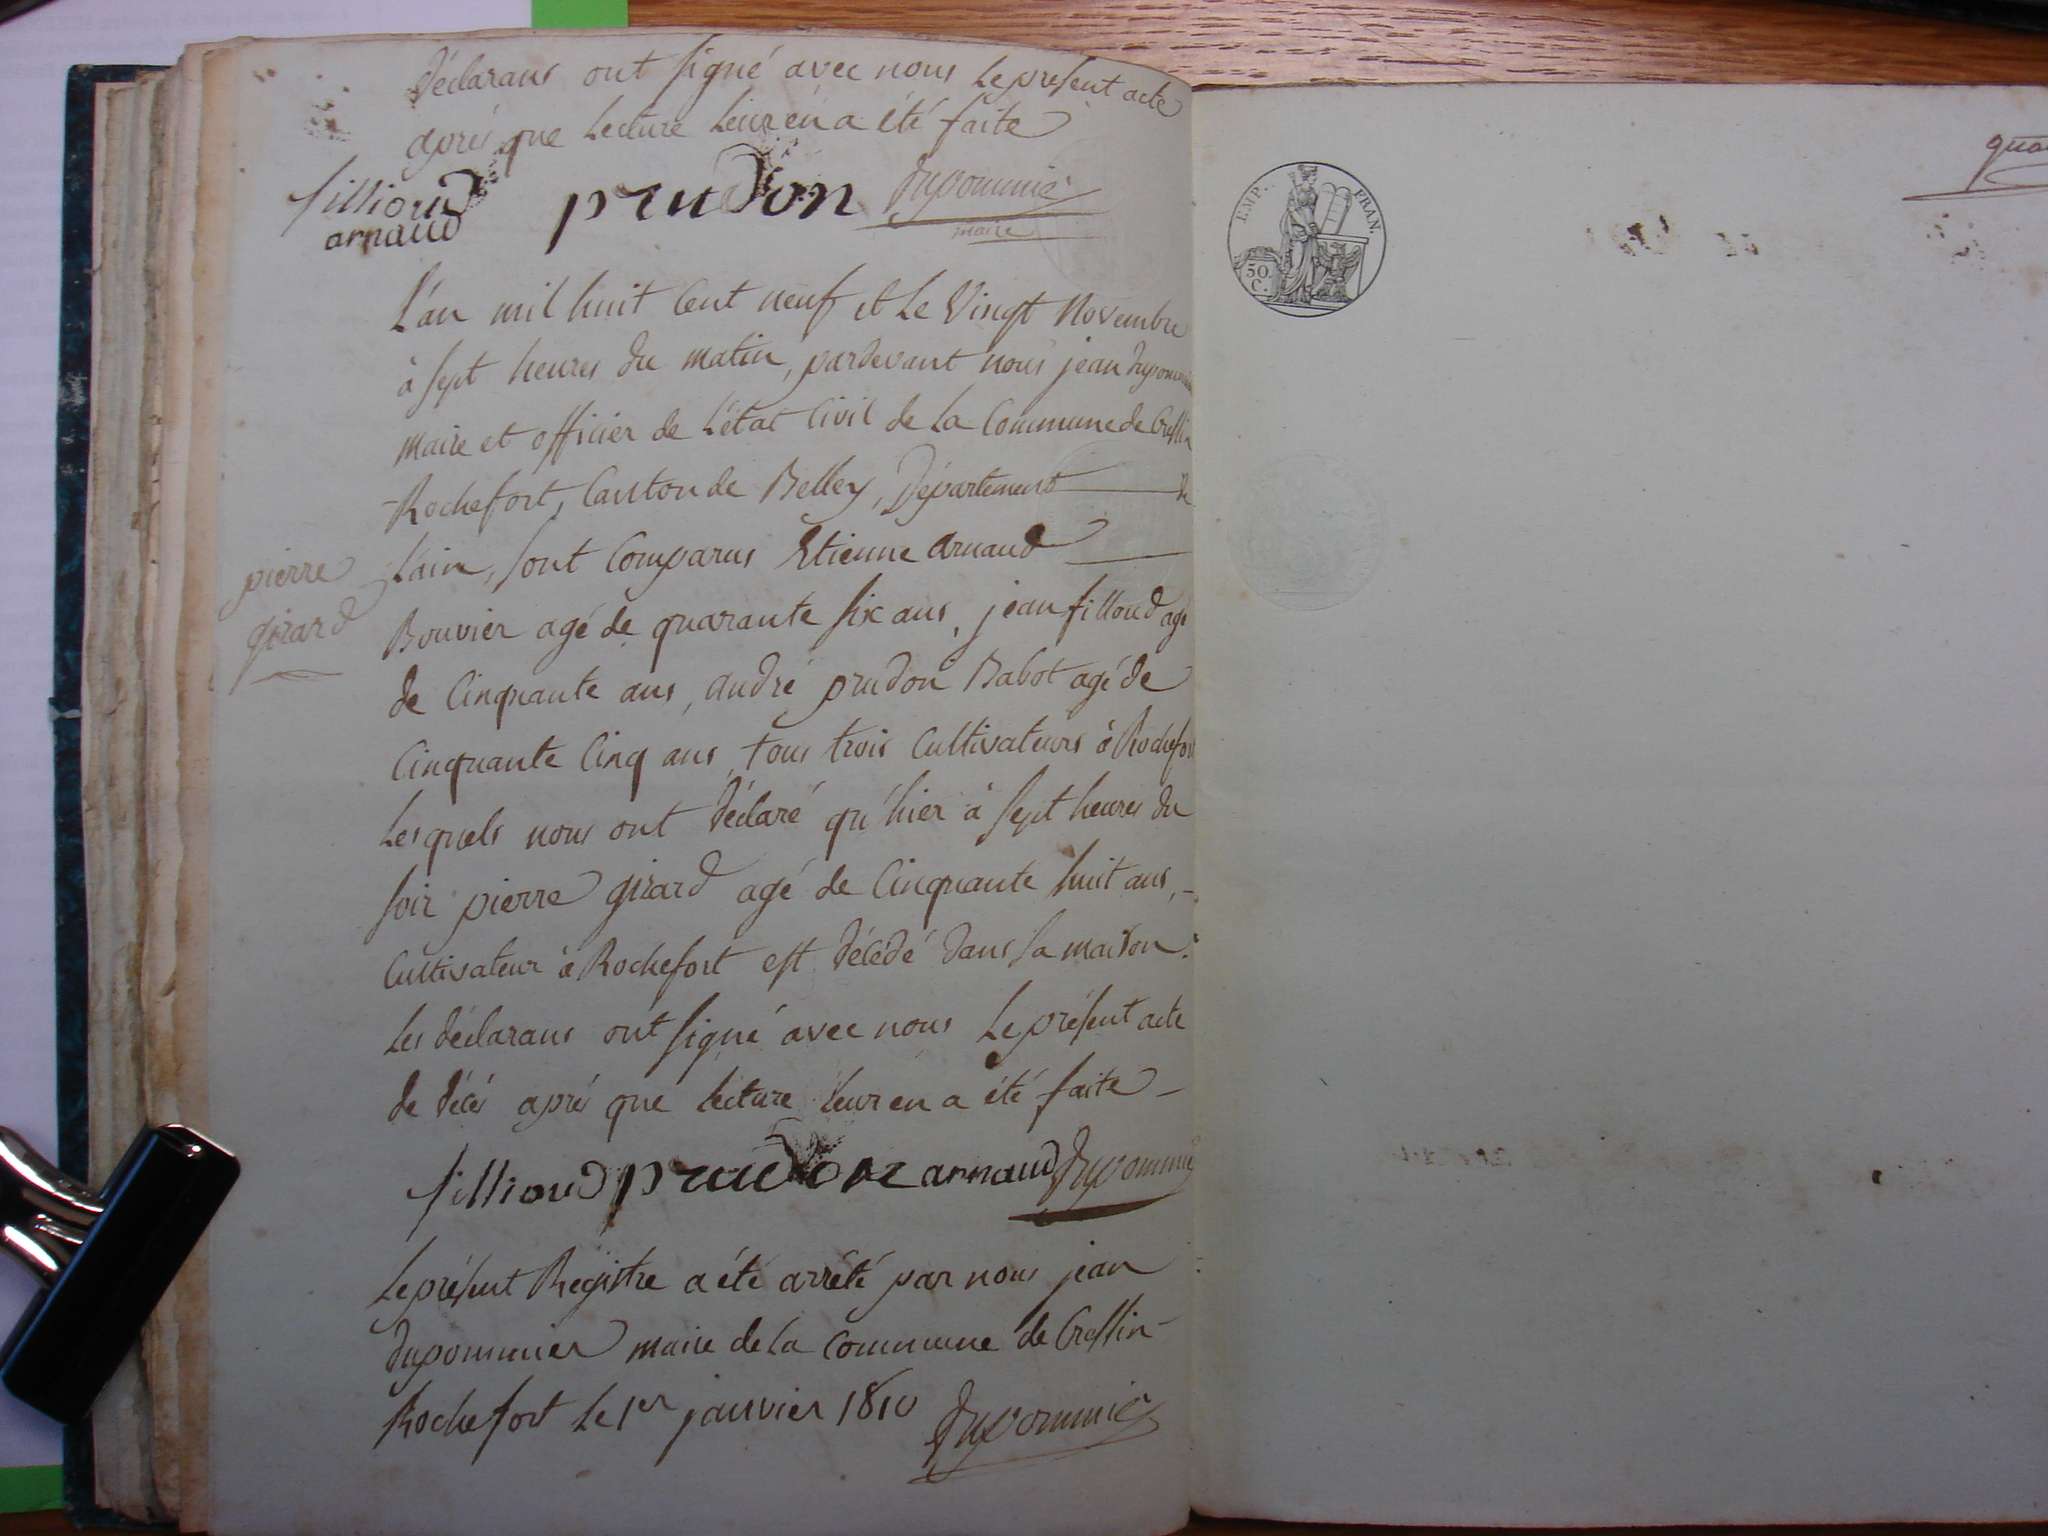 déclarans ont signé avec nous le présent acte
après que lecture leur en a été faite
fillioud prudon dupommié
arnaud maire
L'an mil huit cent neuf et le vingt Novembre
à sept heures du matin, pardevant nous jean dupommier
maire et officier de l'état civil de la Commune de Cressin
Rochefort, Canton de Belley, Département de
pierre
girard
L'ain, sont Comparus Etienne arnaud
Bouvier agé de quarante six ans, jean filloud agé
de Cinquante ans, andré prudon Babot agé de
Cinquante Cinq ans, tous trois Cultivateurs à Rochefort
Lesquels nous ont déclaré qu'hier à sept heures du
soir pierre girard agé de Cinquante huit ans,
Cultivateur à Rochefort est décédé dans sa maison.
Les déclarans ont signé avec nous le présent acte
de décés aprés que lecture leur en a été faite
fillioud prudon arnaud dupommié
Le présent Registre a été arrêté par nous jean
dupommier maire de la commune de Cressin
Rochefort le 1er janvier 1810 dupommié
EMP. FRAN.
50.
C.